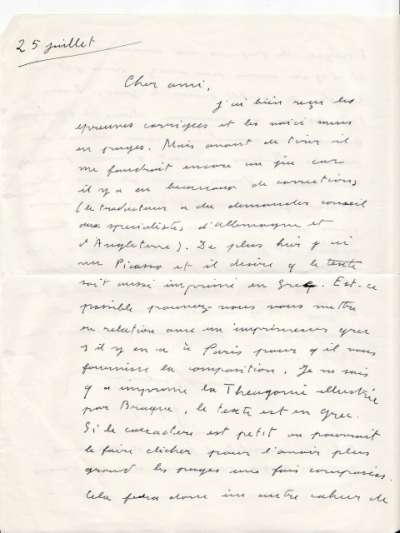 25 juillet
Cher ami,
j'ai bien reçu les
épreuves corrigées et les voici mises
en pages. Mais avant de tirer il
me faudrait encore un jeu car
il y a eu beaucoup de corrections
(le traducteur a dû demander conseil
aux spécialistes d'Allemagne et
d'Angleterre). De plus hier j'ai
vu Picasso et il désire q le texte
soit aussi imprimé en Grec. Est-ce
possible pouvez-vous nous mettre
en relation avec un imprimeur grec
s'il y en a à Paris pour q'il nous
fournisse la composition. Je ne sais
q a imprimé la Théogonie illustrée
par Braque, le texte est en grec.
Si le caractère est petit on pourrait
le faire clicher pour l'avoir plus
grand les pages une fois composées.
Cela fera donc un autre cahier de